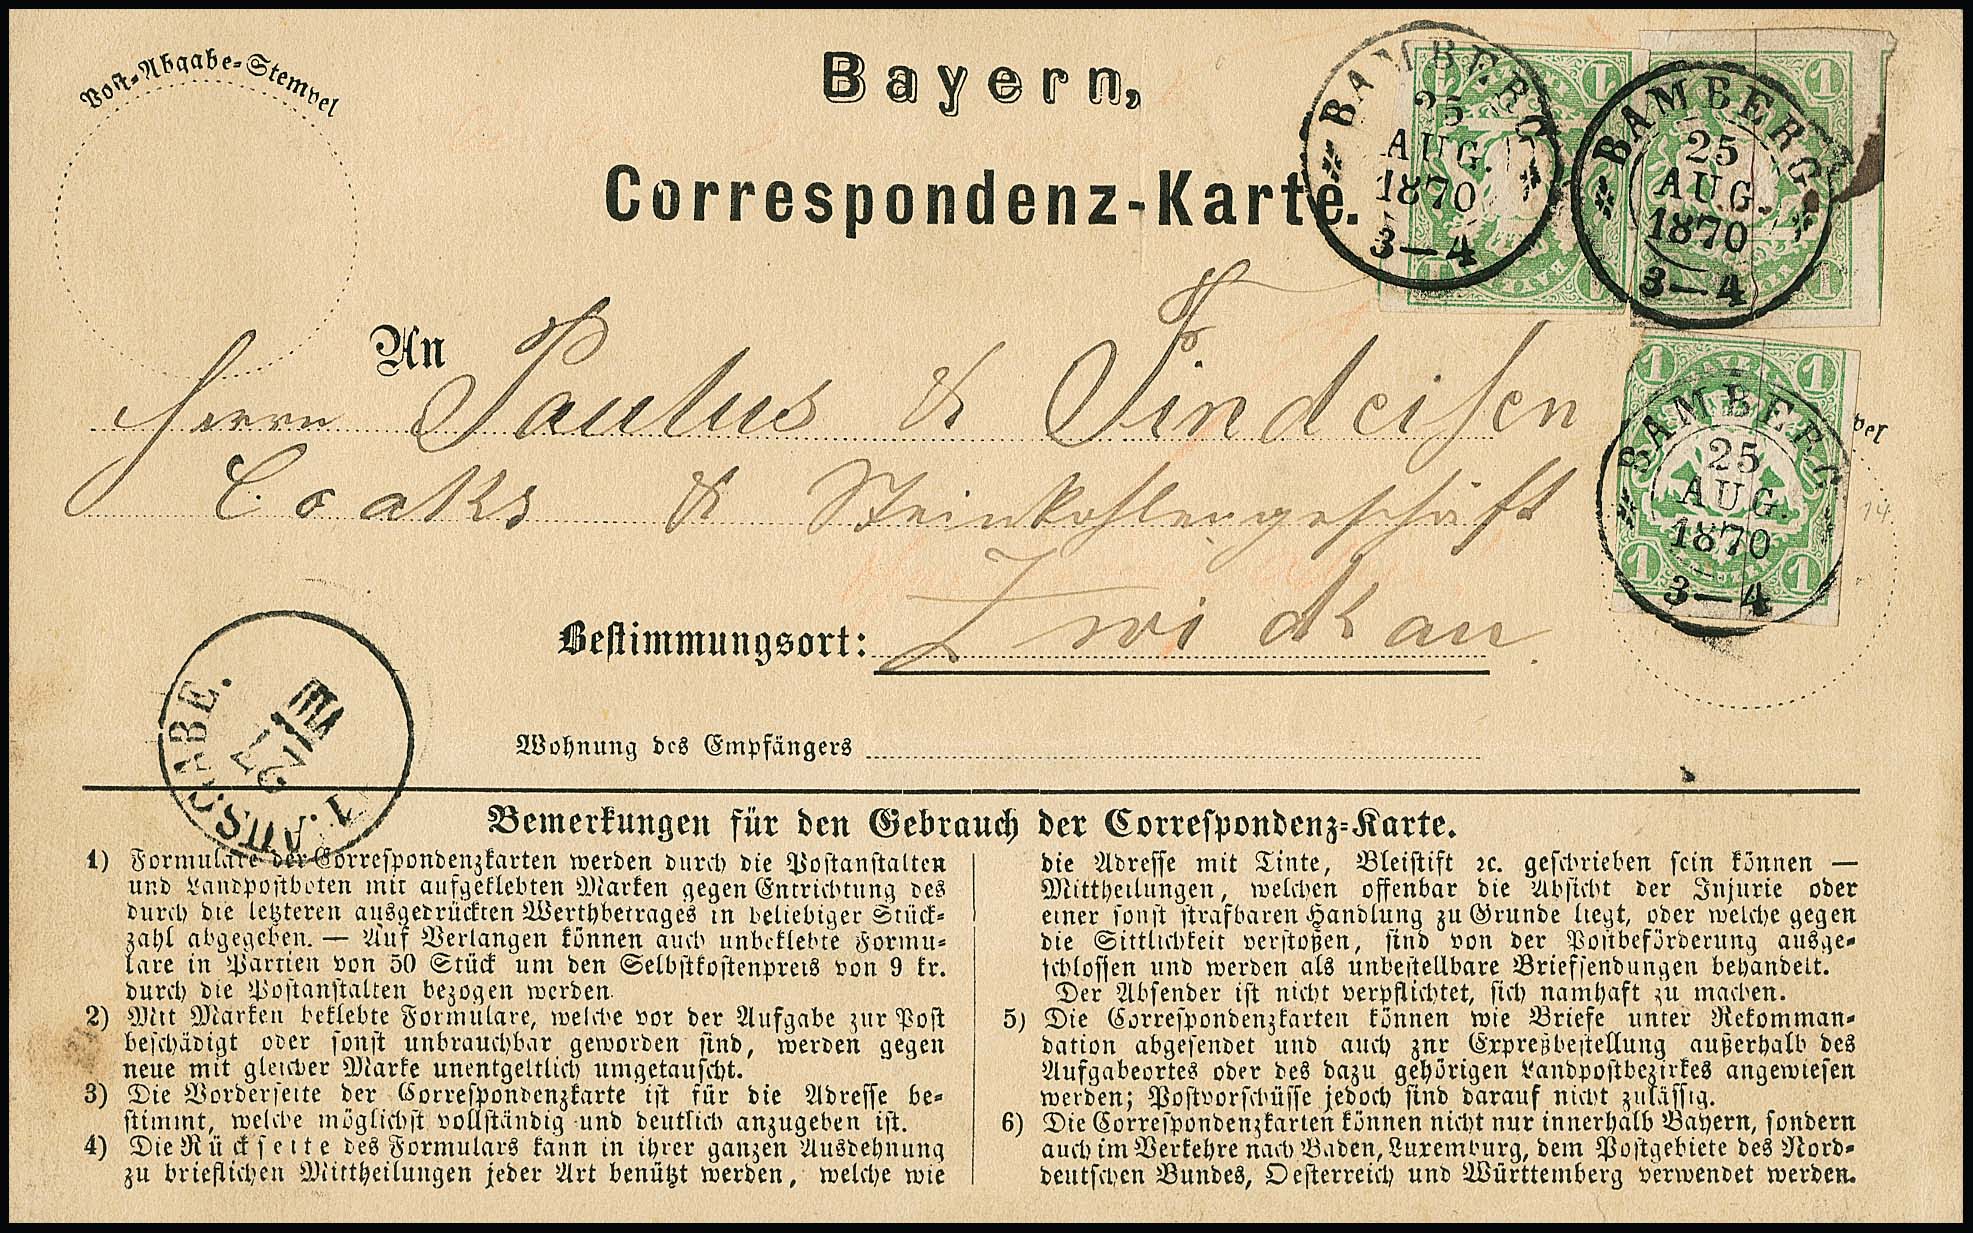 Post-Abgabe-Stempel
Bayern,
Correspondenz-Karte.
BAMBERG
25
AUG.
1870
3—4
BAMBERG
25
AUG.
1870
3—4
1 1 1 1
BAMBERG
25
AUG.
1870
3—4
pel
14
An
Herrn Paulus & Findeisen
Coaks & Steinkohlengeschäft
Bestimmungsort: Zwickau.
Wohnung des Empfängers
AUSGABE.
Bemerkungen für den Gebrauch der Correspondenz-Karte.
1) Formulare der Correspondenzkarten werden durch die Postanstalten
und Landpostboten mit aufgeklebten Marken gegen Entrichtung des
durch die letzteren ausgedrückten Werthbetrages in beliebiger Stück-
zahl abgegeben. — Auf Verlangen können auch unbeklebte Formu-
lare in Partien von 50 Stück um den Selbstkostenpreis von 9 kr.
durch die Postanstalten bezogen werden.
2) Mit Marken beklebte Formulare, welche vor der Aufgabe zur Post
beschädigt oder sonst unbrauchbar geworden sind, werden gegen
neue mit gleicher Marke unentgeltlich umgetauscht.
3) Die Vorderseite der Correspondenzkarte ist für die Adresse be-
stimmt, welche möglichst vollständig und deutlich anzugeben ist.
4) Die Rückseite des Formulars kann in ihrer ganzen Ausdehnung
zu brieflichen Mittheilungen jeder Art benützt werden, welche wie
die Adresse mit Tinte, Bleistift ꝛc. geschrieben sein können —
Mittheilungen, welchen offenbar die Absicht der Injurie oder
einer sonst strafbaren Handlung zu Grunde liegt, oder welche gegen
die Sittlichkeit verstoßen, sind von der Postbeförderung ausge-
schlossen und werden als unbestellbare Briefsendungen behandelt.
Der Absender ist nicht verpflichtet, sich namhaft zu machen.
5) Die Correspondenzkarten können wie Briefe unter Rekomman-
dation abgesendet und auch znr Expreßbestellung außerhalb des
Aufgabeortes oder des dazu gehörigen Landpostbezirkes angewiesen
werden; Postvorschüsse jedoch sind darauf nicht zulässig.
6) Die Correspondenzkarten können nicht nur innerhalb Bayern, sondern
auch im Verkehre nach Baden, Luxemburg, dem Postgebiete des Nord-
deutschen Bundes, Oesterreich und Württemberg verwendet werden.